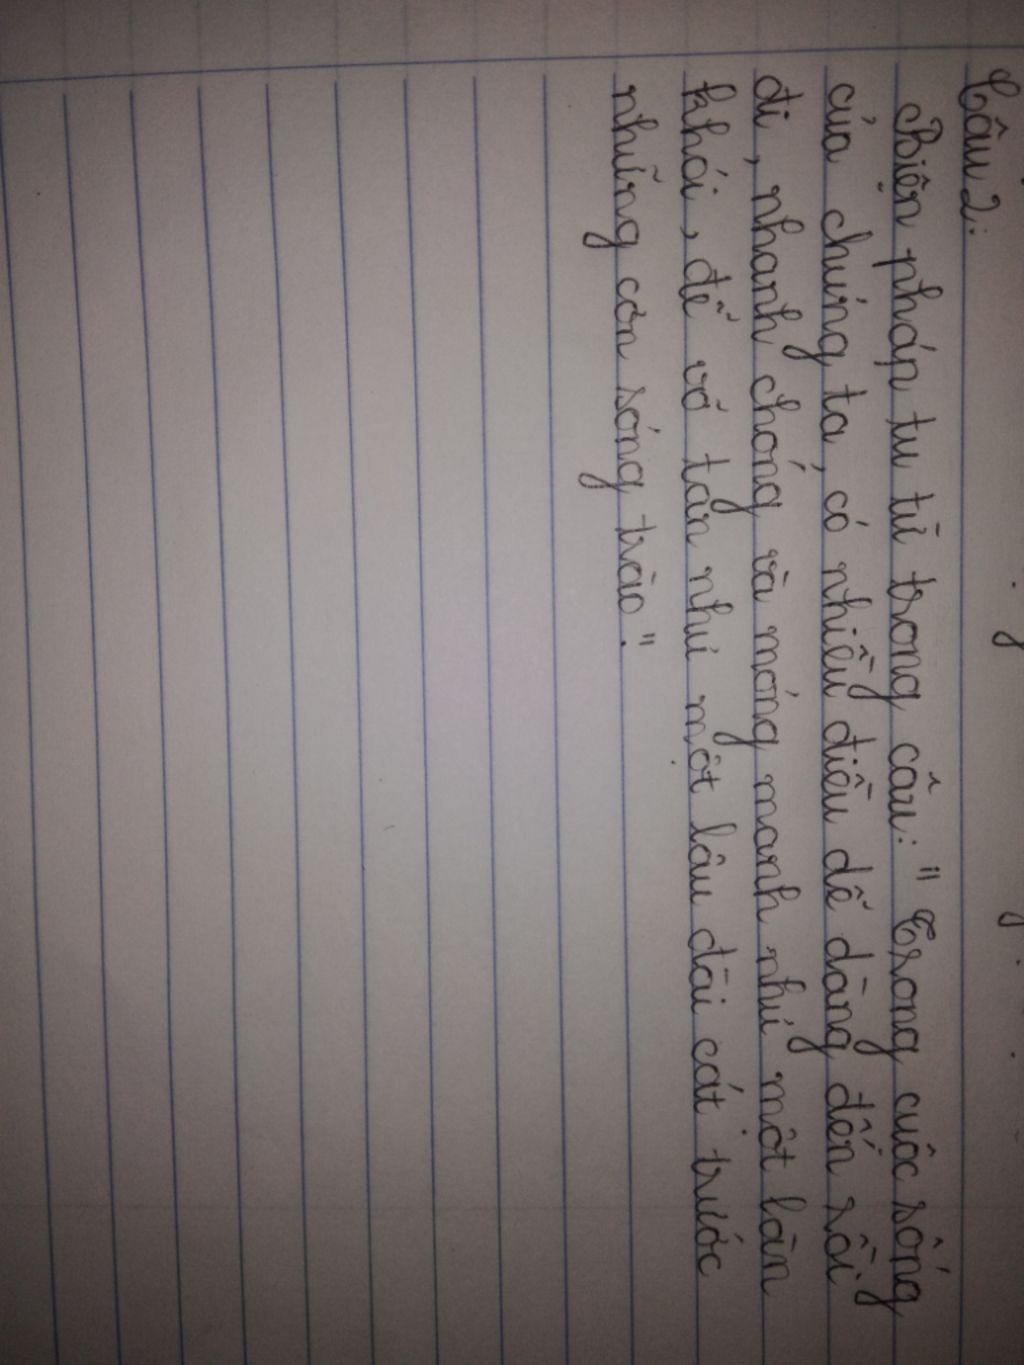 Câu 2:
Biện pháp tu từ trong câu: " Trong cuộc sống
của chúng ta, có nhiều điều dễ dàng đến rồi
đi, nhanh chóng và mỏng manh như một làn
khói, dễ vỡ tan như một lâu đài cát trước
những cơn sóng trào".